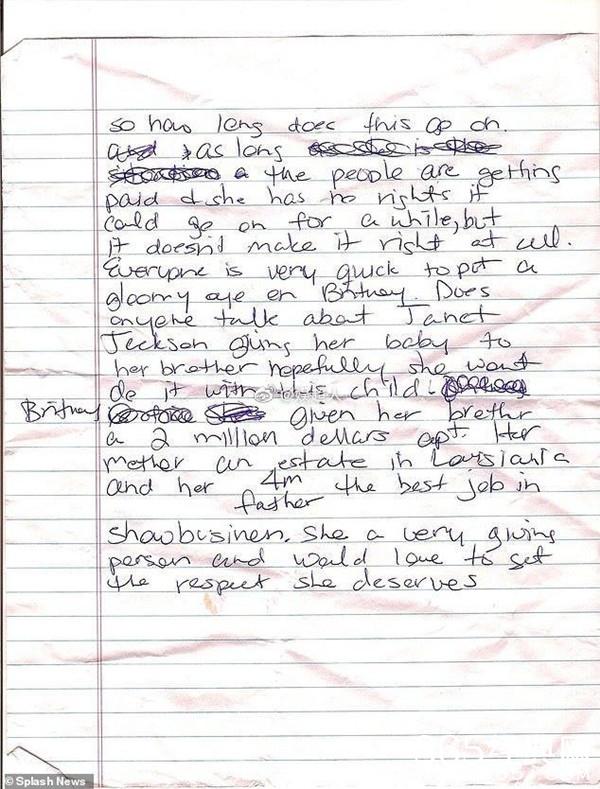 so how long does this go on.
and as long
a the people are getting
paid & she has no rights it
could go on for a while, but
it doesn't make it right at all.
Everyone is very quick to put a
gloomy eye on Britney. Does
anyone talk about Janet
Jeckson giving her baby to
her brother hopefully she wont
do it with this child.
Britney given her brether
a 2 million dollars apt. Her
mother an estate in Louisiania
and her 4m the best job in
father
showbusiness. She a very giving
person and would love to get
the respect she deserves
© Splash News